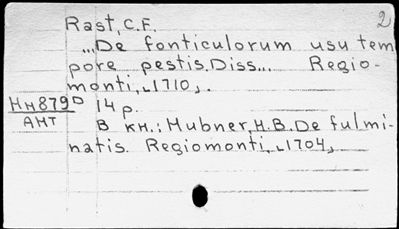 2
Rast, C.F.
...De fonticulorum usu tem
pore pestis. Diss... Regio-
monti, ⌞1710⌟.
Нн879ᴰ 14 p.
АНТ
В кн.: Hubner, H.B. De fulmi-
natis. Regiomonti, ⌞1704⌟